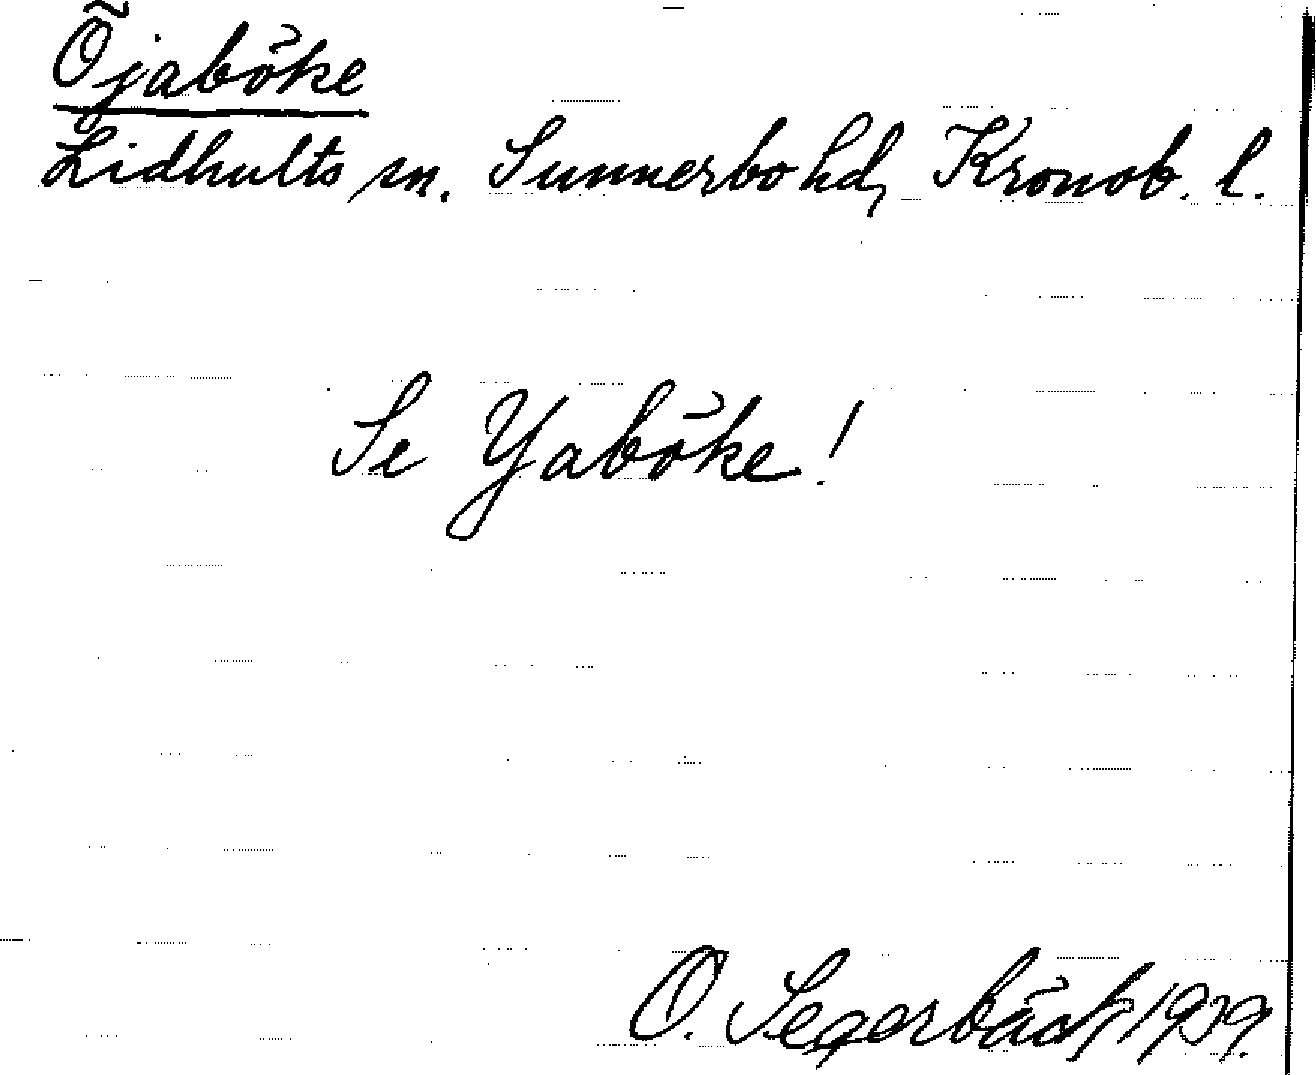 Öjaböke
Lidhults sn. Sunnerbo hd, Kronob. l.
Se Yaböke!
O. Segerbäck 1929.